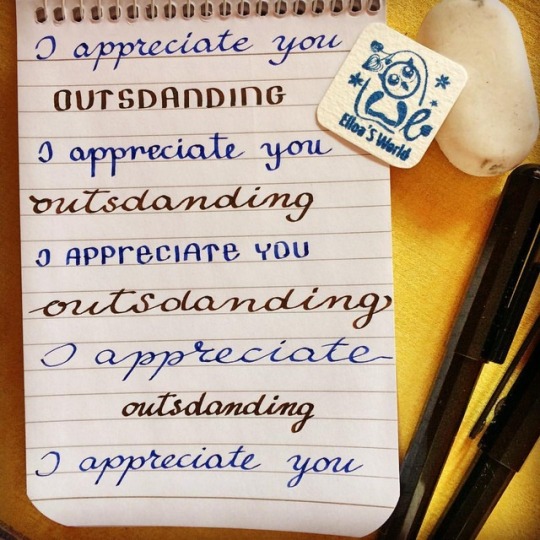 I appreciate you
OUTSDANDING
I appreciate you
outsdanding
I APPreCIATE YOU
outsdanding
I appreciate
outsdanding
I appreciate you
Elloa's World